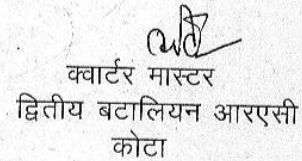 क्वार्टर मास्टर
द्वितीय बटालियन आरएसी
कोटा